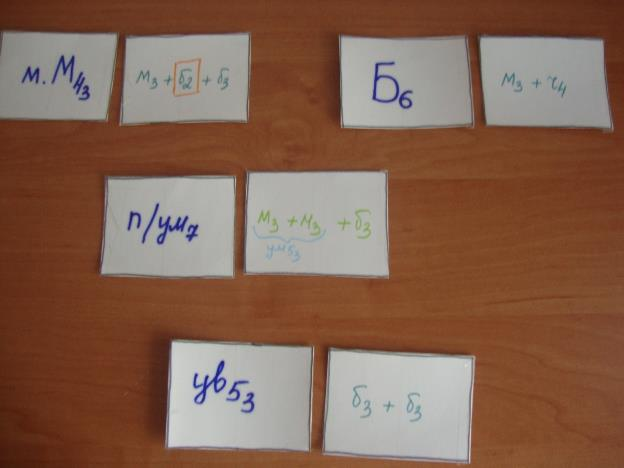 м. М₄₃
м₃ + б₂ + б₃
Б₆
м₃ + ч₄
п/ум₇
м₃ + м₃ + б₃
ум₅₃
ув₅₃
б₃ + б₃